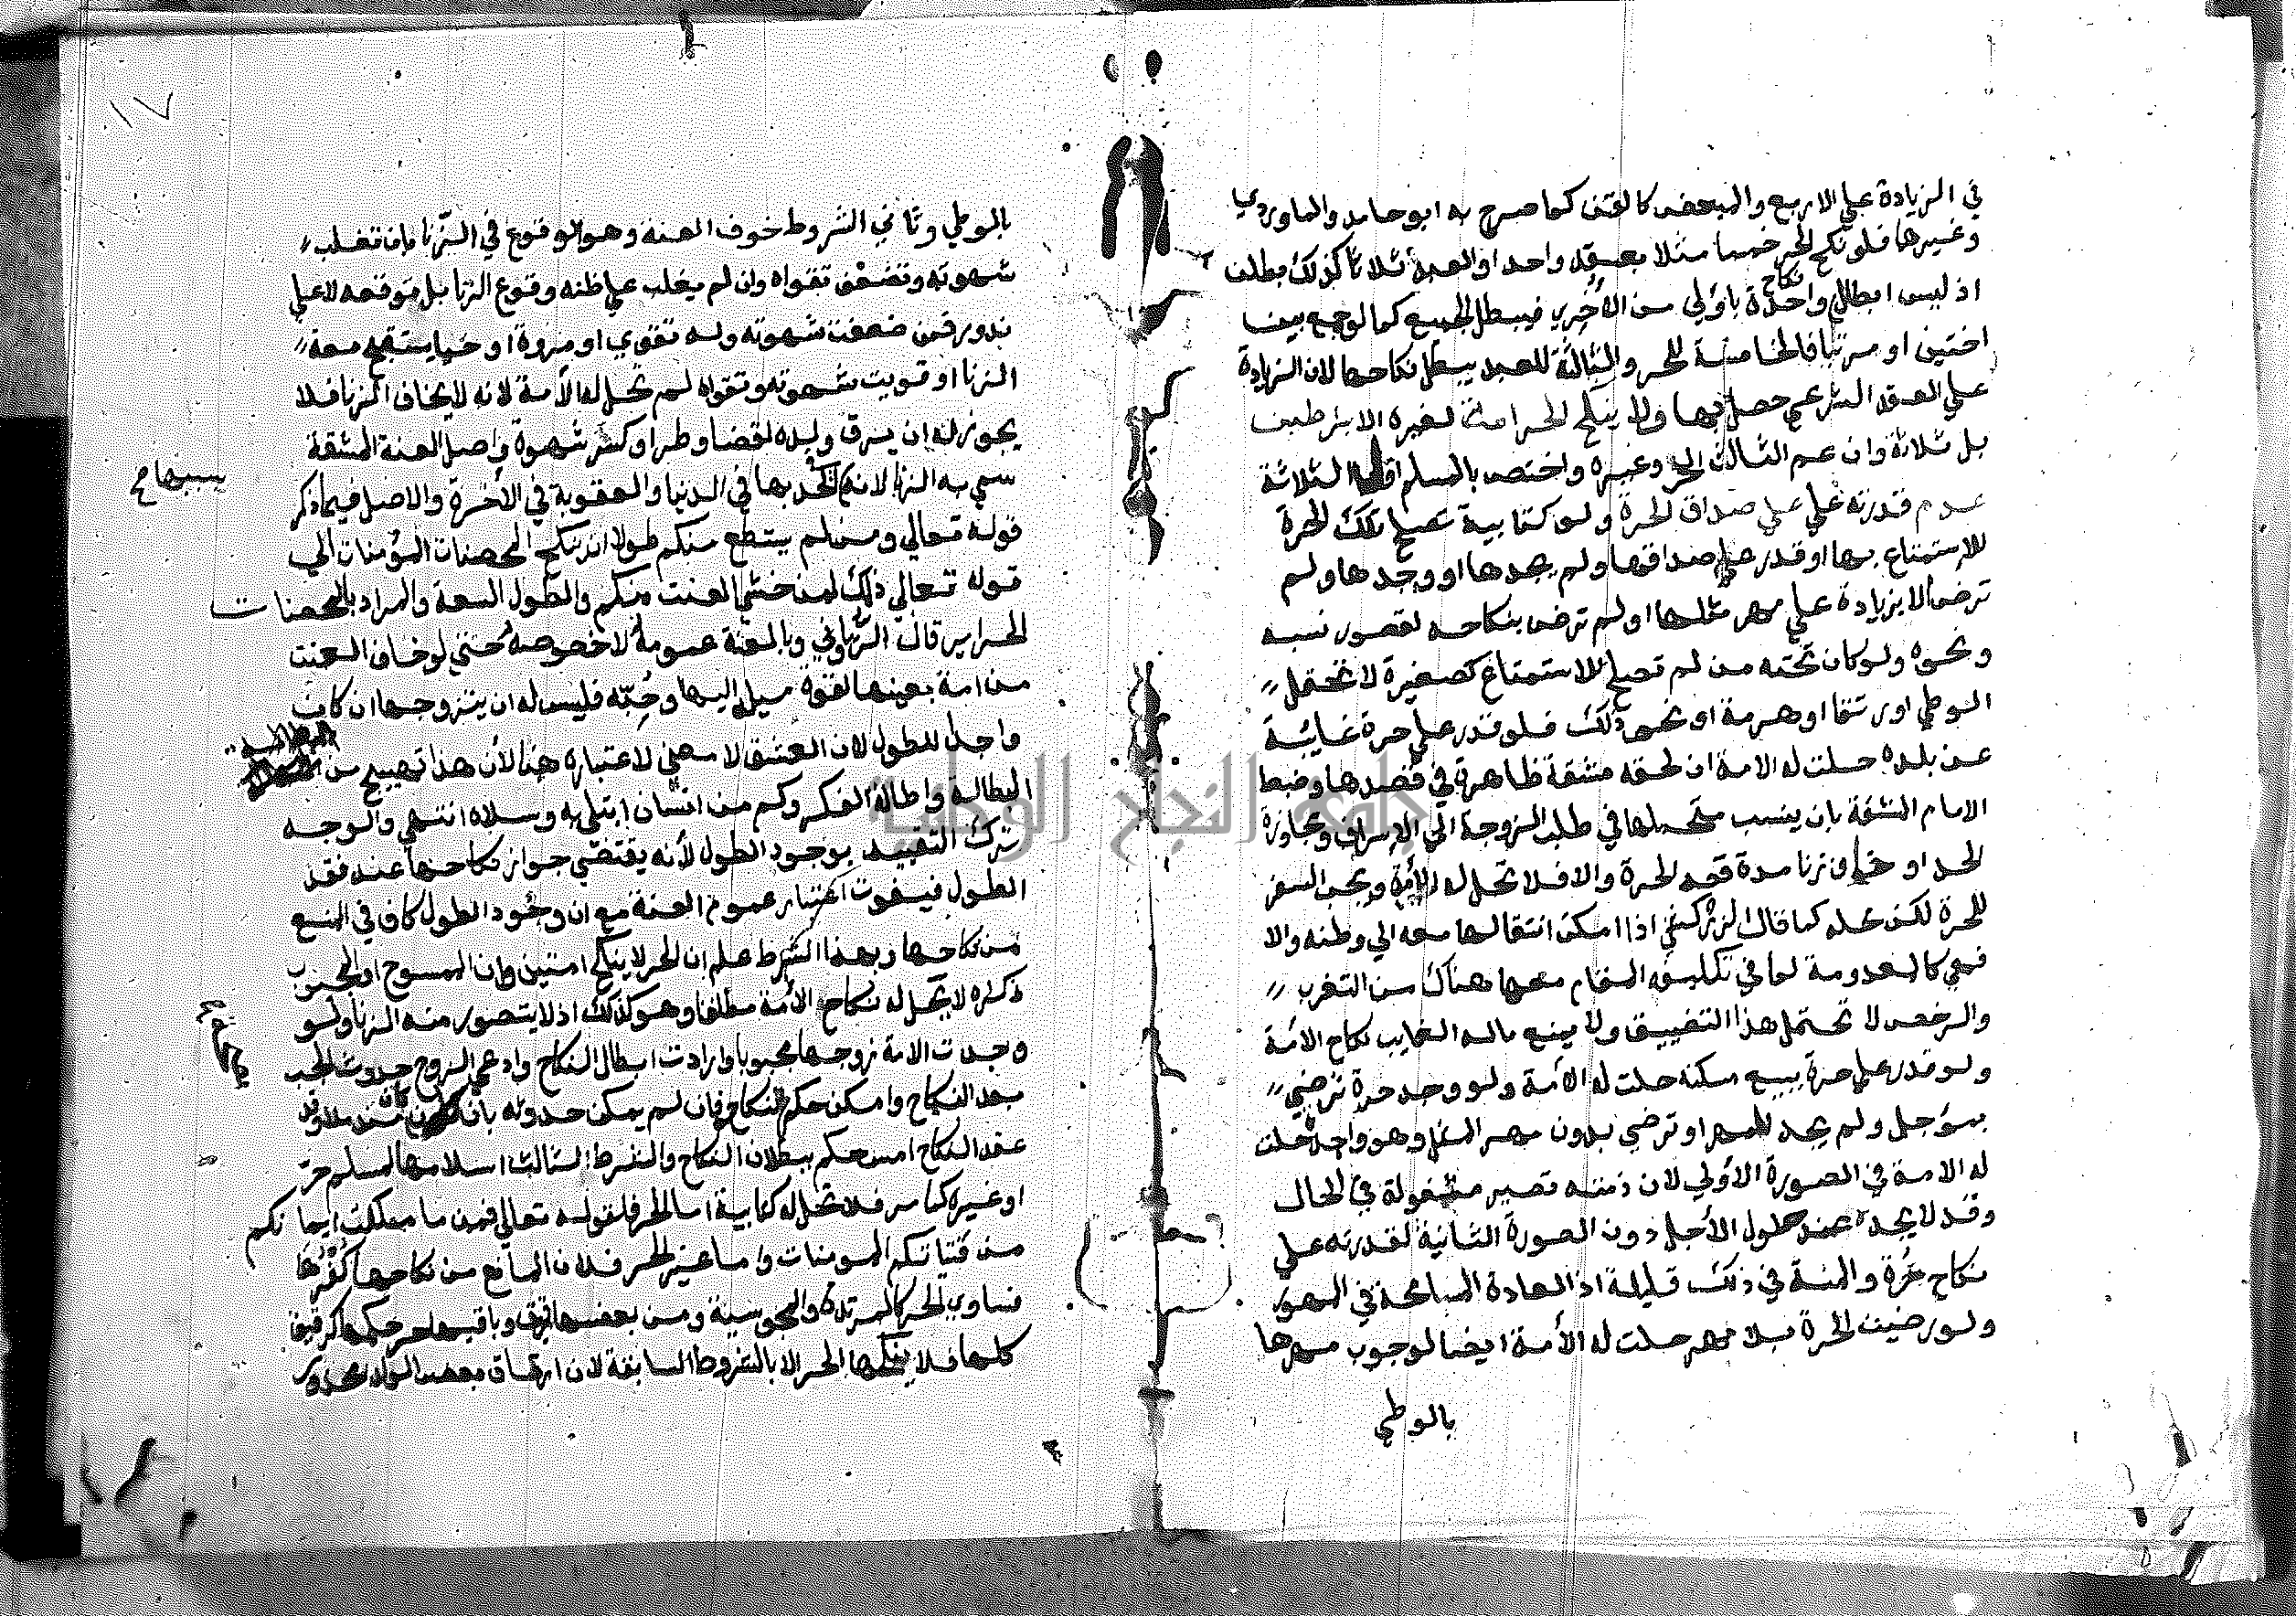 في الزيادة علي الاربع والمبعض كالقن كما صرح به ابو حامد والماوردي
وغيرها فلو نكح الحر خمسا مثلا بعقد واحد او العبد ثلاثا كذلك بطلت
اذ ليس ابطال نكاح واحدة باولي من الأخري فيبطل الجميع كما لو جمع بين
اختين او مرتبا فالخامسة للحر والثالثة للعبد يبطل نكاحها لان الزيادة
علي العقد الشرعي حصل بها ولا ينكح الحر امة لغيره الا بشرطين
بل ثلاثة وان عم الثالث الحر وغيره واختص بالمسلم اول الثلاثة
عدم قدرته علي صداق الحرة ولو كتابية تصلح تلك الحرة
للاستمتاع بها او قدر علي صداقها ولم يجدها او وجدها ولم
ترض الا بزيادة علي مهر مثلها او لم ترض بنكاحه لقصور نسبه
ونحوه ولو كان تحته من لم تصلح للاستمتاع كصغيرة لا تحتمل
الوطي او رتقا او هرمة او نحو ذلك فلو قدر علي حرة غايبة
عن بلده حلت له الامة ان لحقه مشقة ظاهرة في قصدها وضبط
الامام المشقة بان ينسب متحملها في طلب الزوجة الي الاسراف ومجاوزة
الحد او خاف زنا مدة قصد الحرة والا فلا تحل له الأمة ويجب السفر
للحرة لكن محله كما قال الزركشي اذا امكن انتقالها معه الي وطنه والا
فهي كالمعدومة لما في تكليفه المقام معها هناك من التغرب
والرخص لا تحتمل هذا التضييق ولا يمنع ماله الغايب نكاح الأمة
ولو قدر علي حرة ببيع مسكنه حلت له الأمة ولو وجد حرة ترضي
بمؤجل ولم يجد المهر او ترضي بدون مهر المثل وهو واجده حلت
له الامة في الصورة الأولي لان ذمته تصير مشغولة في الحال
وقد لا يجده عند حلول الأجل دون الصورة الثانية لقدرته علي
نكاح حرة والمنة في ذلك قليلة اذ العادة المسامحة في المهور
ولو رضيت الحرة بلا مهر حلت له الأمة ايضا لوجوب مهرها
بالوطي
١٧
بالوطي وثاني الشروط خوف العنة وهو الوقوع في الزنا بان تغلب
شهوته وتضعف تقواه وان لم يغلب علي ظنه وقوع الزنا بل توقعه لا علي
ندور فمن ضعفت شهوته وله تقوي او مروة او حيا يستقبح معه
الزنا او قويت شهوته وتقواه لم تحل له الأمة لانه لا يخاف الزنا فلا
يجوز له ان يرق ولده لقضا وطر او كسر شهوة واصل العنة المشقة
سمي به الزنا لانه سببها بالحد بها في الدنيا والعقوبة في الأخرة والاصل فيما ذكر
قوله تعالي ومن لم يستطع منكم طولا ان ينكح المحصنات المؤمنات الي
قوله تعالي ذلك لمن خشي العنت منكم والطول السعة والمراد بالمحصنات
الحراير قال الروياني وبالعنة عمومه لا خصوصه حتي لو خاف العنت
من امة بعينها لقوة ميله اليها وحبه فليس له ان يتزوجها ان كان
واجدا للطول لان العشق لا معني لاعتباره هنا لأن هذا تهييج من
البطالة واطالة الفكر وكم من انسان ابتلي به وسلاه انتهي والوجه
ترك التقييد بوجود الطول لأنه يقتضي جواز نكاحها عند فقد
الطول فيفوت اعتبار عموم العنة مع ان وجود الطول كاف في المنع
من نكاحها وبهذا الشرط علم ان الحر لا ينكح امتين وان الممسوح او المجبوب
ذكره لا يحل له نكاح الأمة مطلقا وهو كذلك اذ لا يتصور منه الزنا ولو
وجدت الامة زوجها مجبوبا وارادت ابطال النكاح وادعي الزوج حدوث الجب
بعد النكاح وامكن حكم النكاح فان لم يمكن حدوثه بان كان
عقد النكاح امس حكم ببطلان النكاح والشرط الثالث اسلامها لمسلم حر
او غيره كما مر فلا تحل له كتابية اما الحر فلقوله تعالي فمن ما ملكت ايمانكم
من فتياتكم المومنات واما غير الحر فلان المانع من نكاحها كفرها
فساوي الحر كالمرتدة والمجوسية ومن بعضها رقيق وباقيها حر حكمها كرقيق
كلها فلا ينكحها الحر الا بالشروط السابقة لان ارقاق بعض الولد محذور